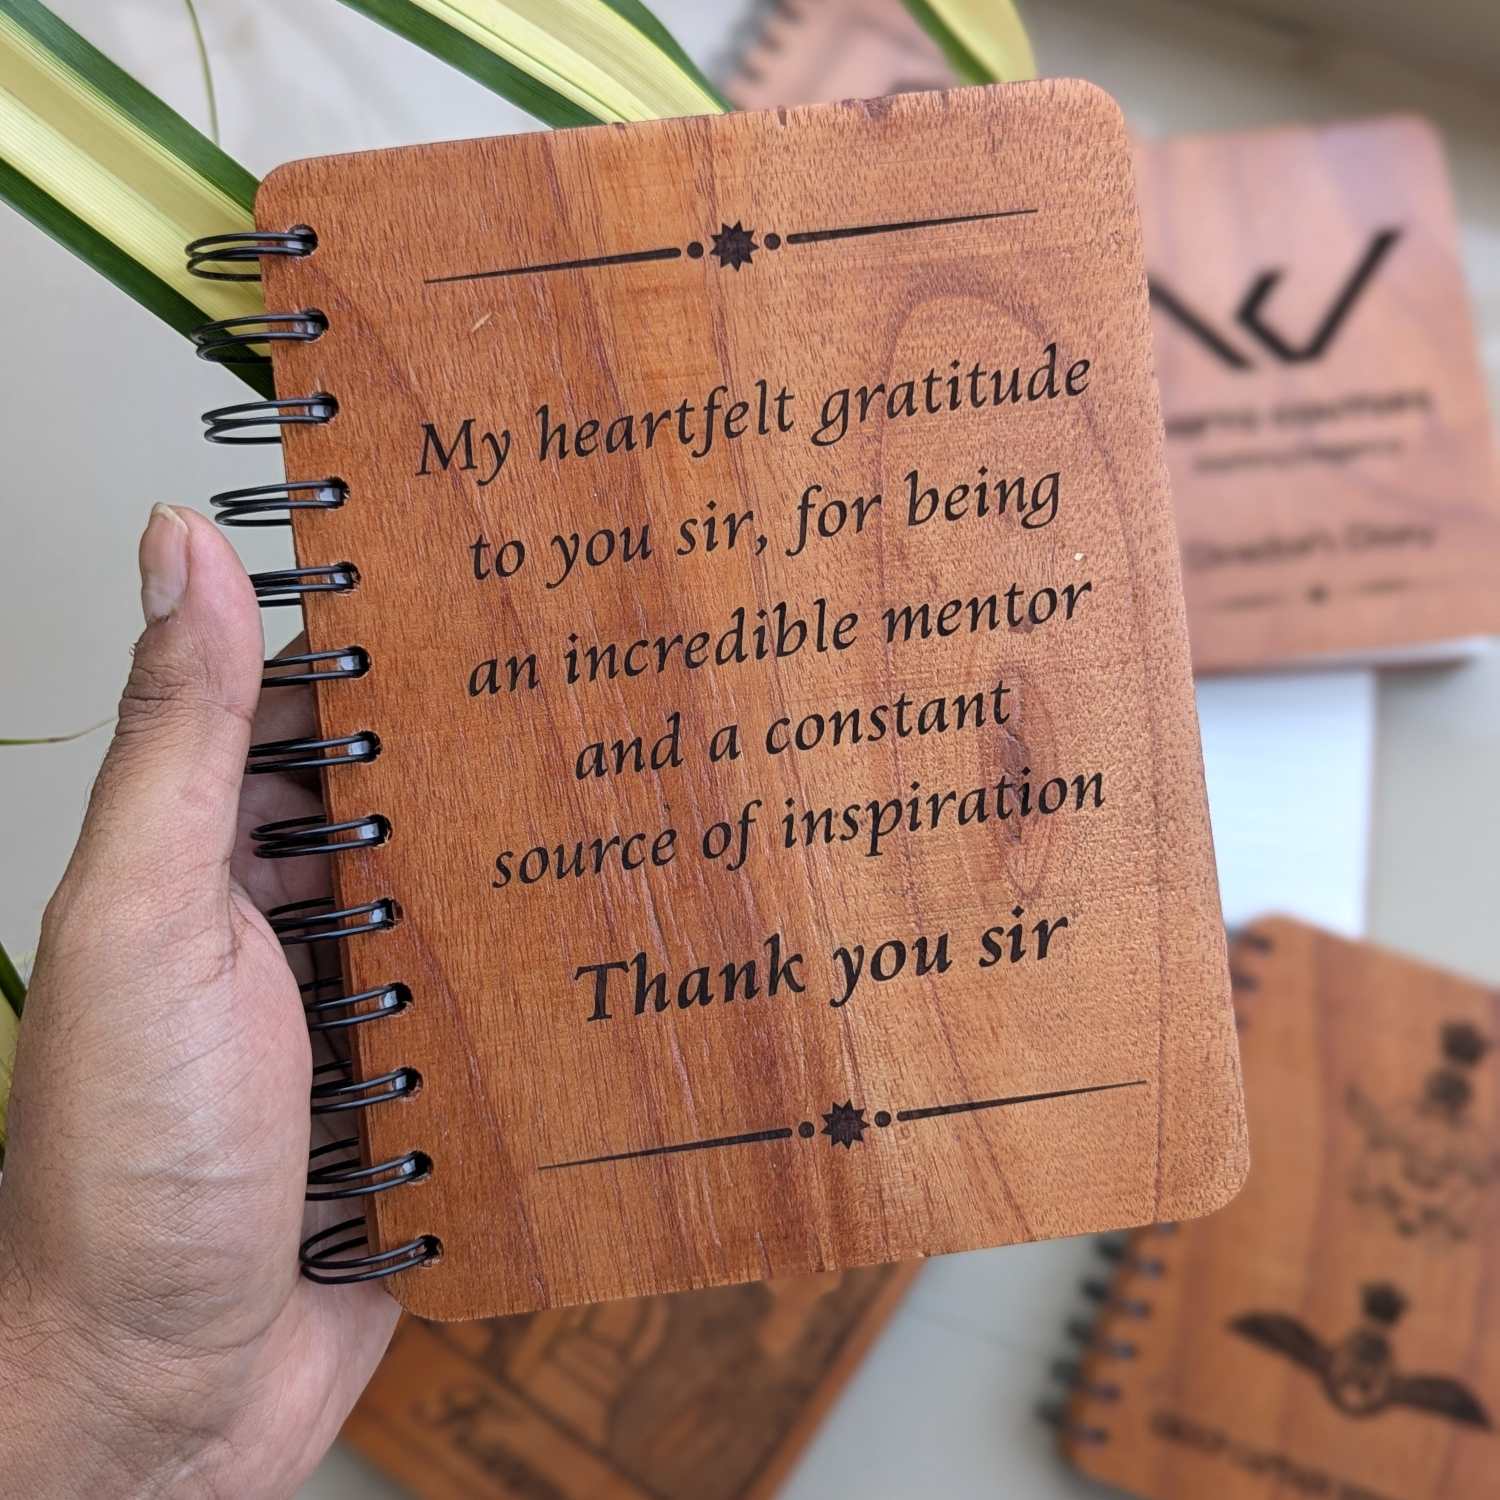 My heartfelt gratitude
to you sir, for being
an incredible mentor
and a constant
source of inspiration
Thank you sir
Director's Diary